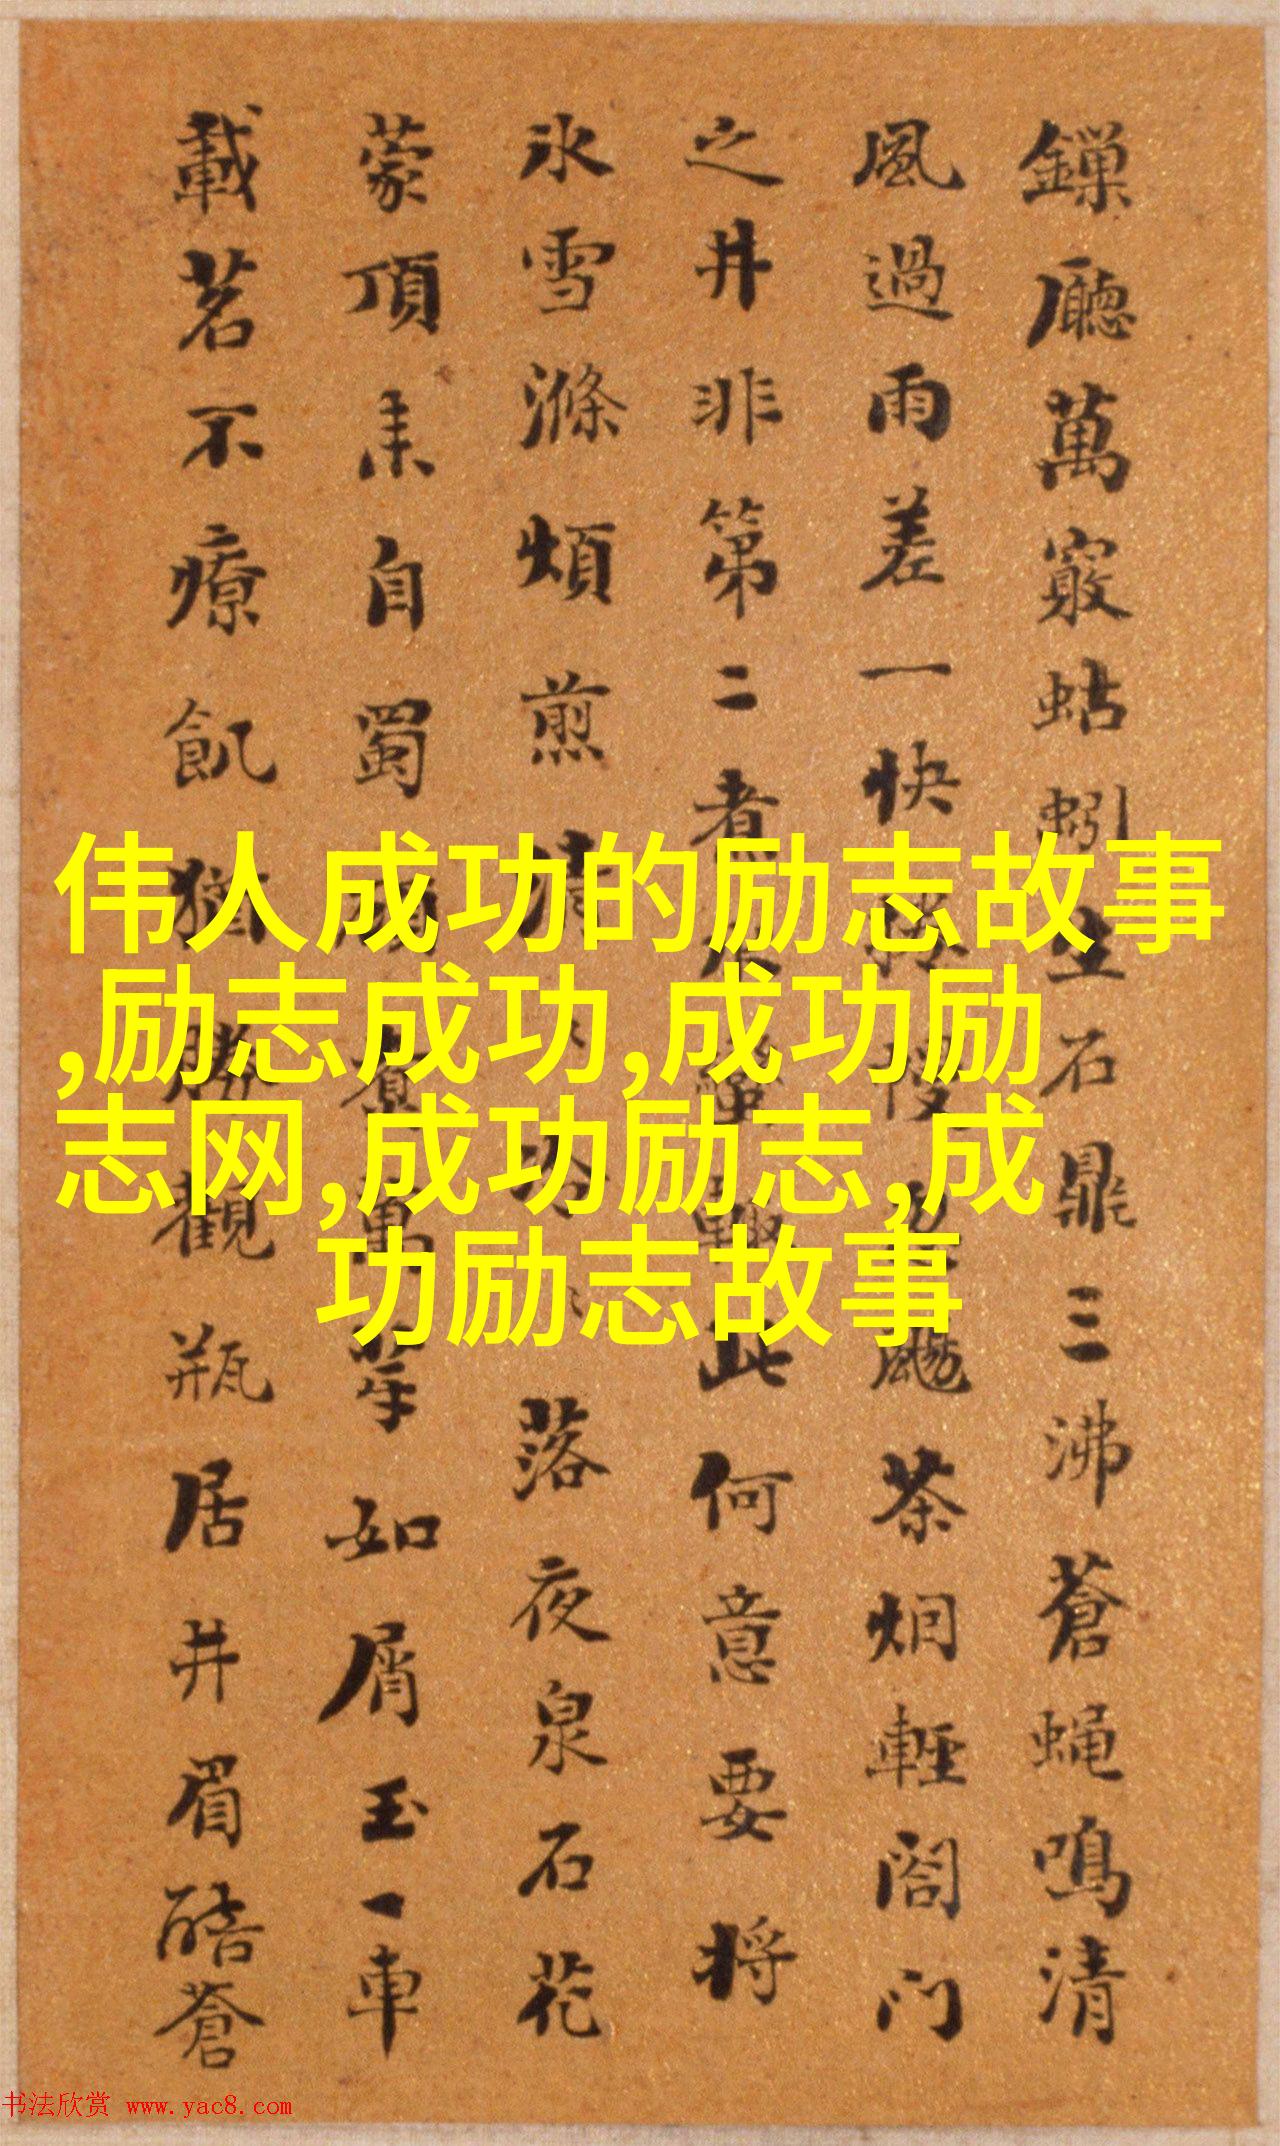 伟人成功的励志故事
,励志成功,成功励
志网,成功励志,成
功励志故事
廳萬蛄蚓生石鼎三沸蒼蝇鳴清
風過雨差一快颺茶烟輕閤門
之井非第二煮此何意要将
氷雪滌煩煎清落夜泉石花
蒙頂来自蜀萬如屑玉一車
載茗不療飢猶勝觀瓶居井眉酷蒼
书法欣赏 www.yac8.com